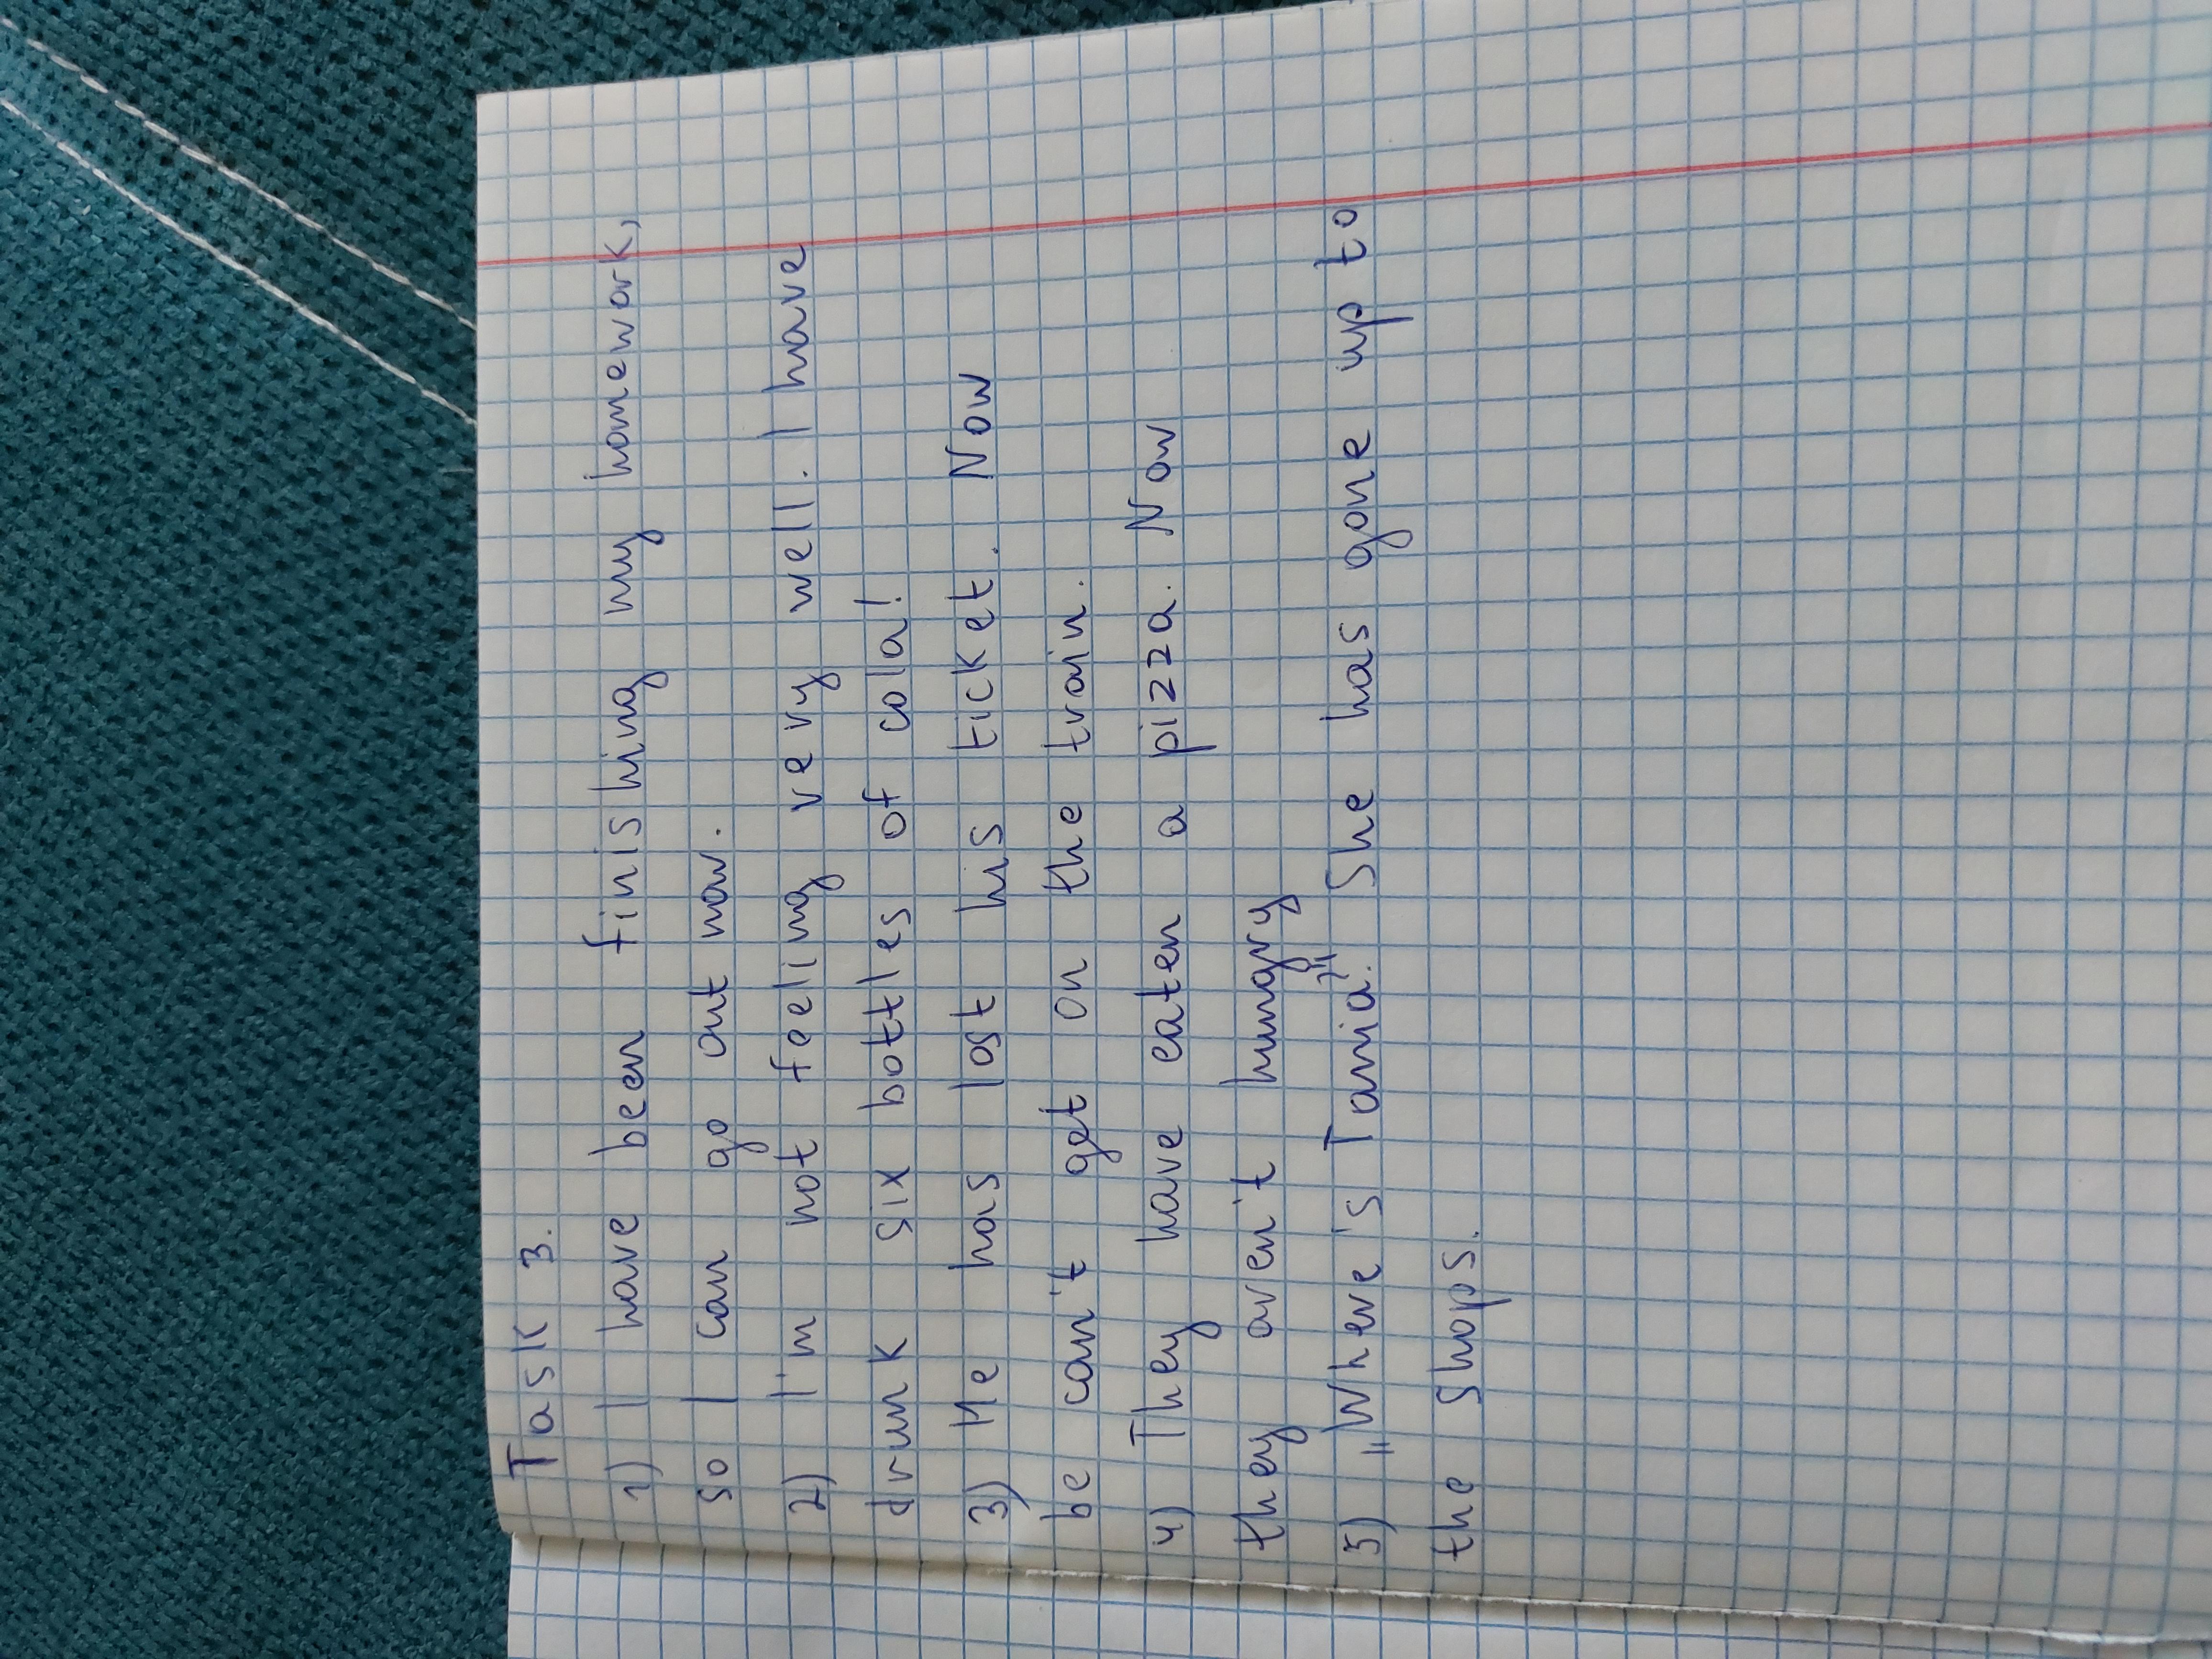 Task 3.
1) I have been finishing my homework,
so I can go out now.
2) I'm not feeling very well. I have
drunk six bottles of cola!
3) He has lost his ticket. Now
be can't get on the train.
4) They have eaten a pizza. Now
they aren't hungry
5) „Where's Tania." She has gone up to
the shops.